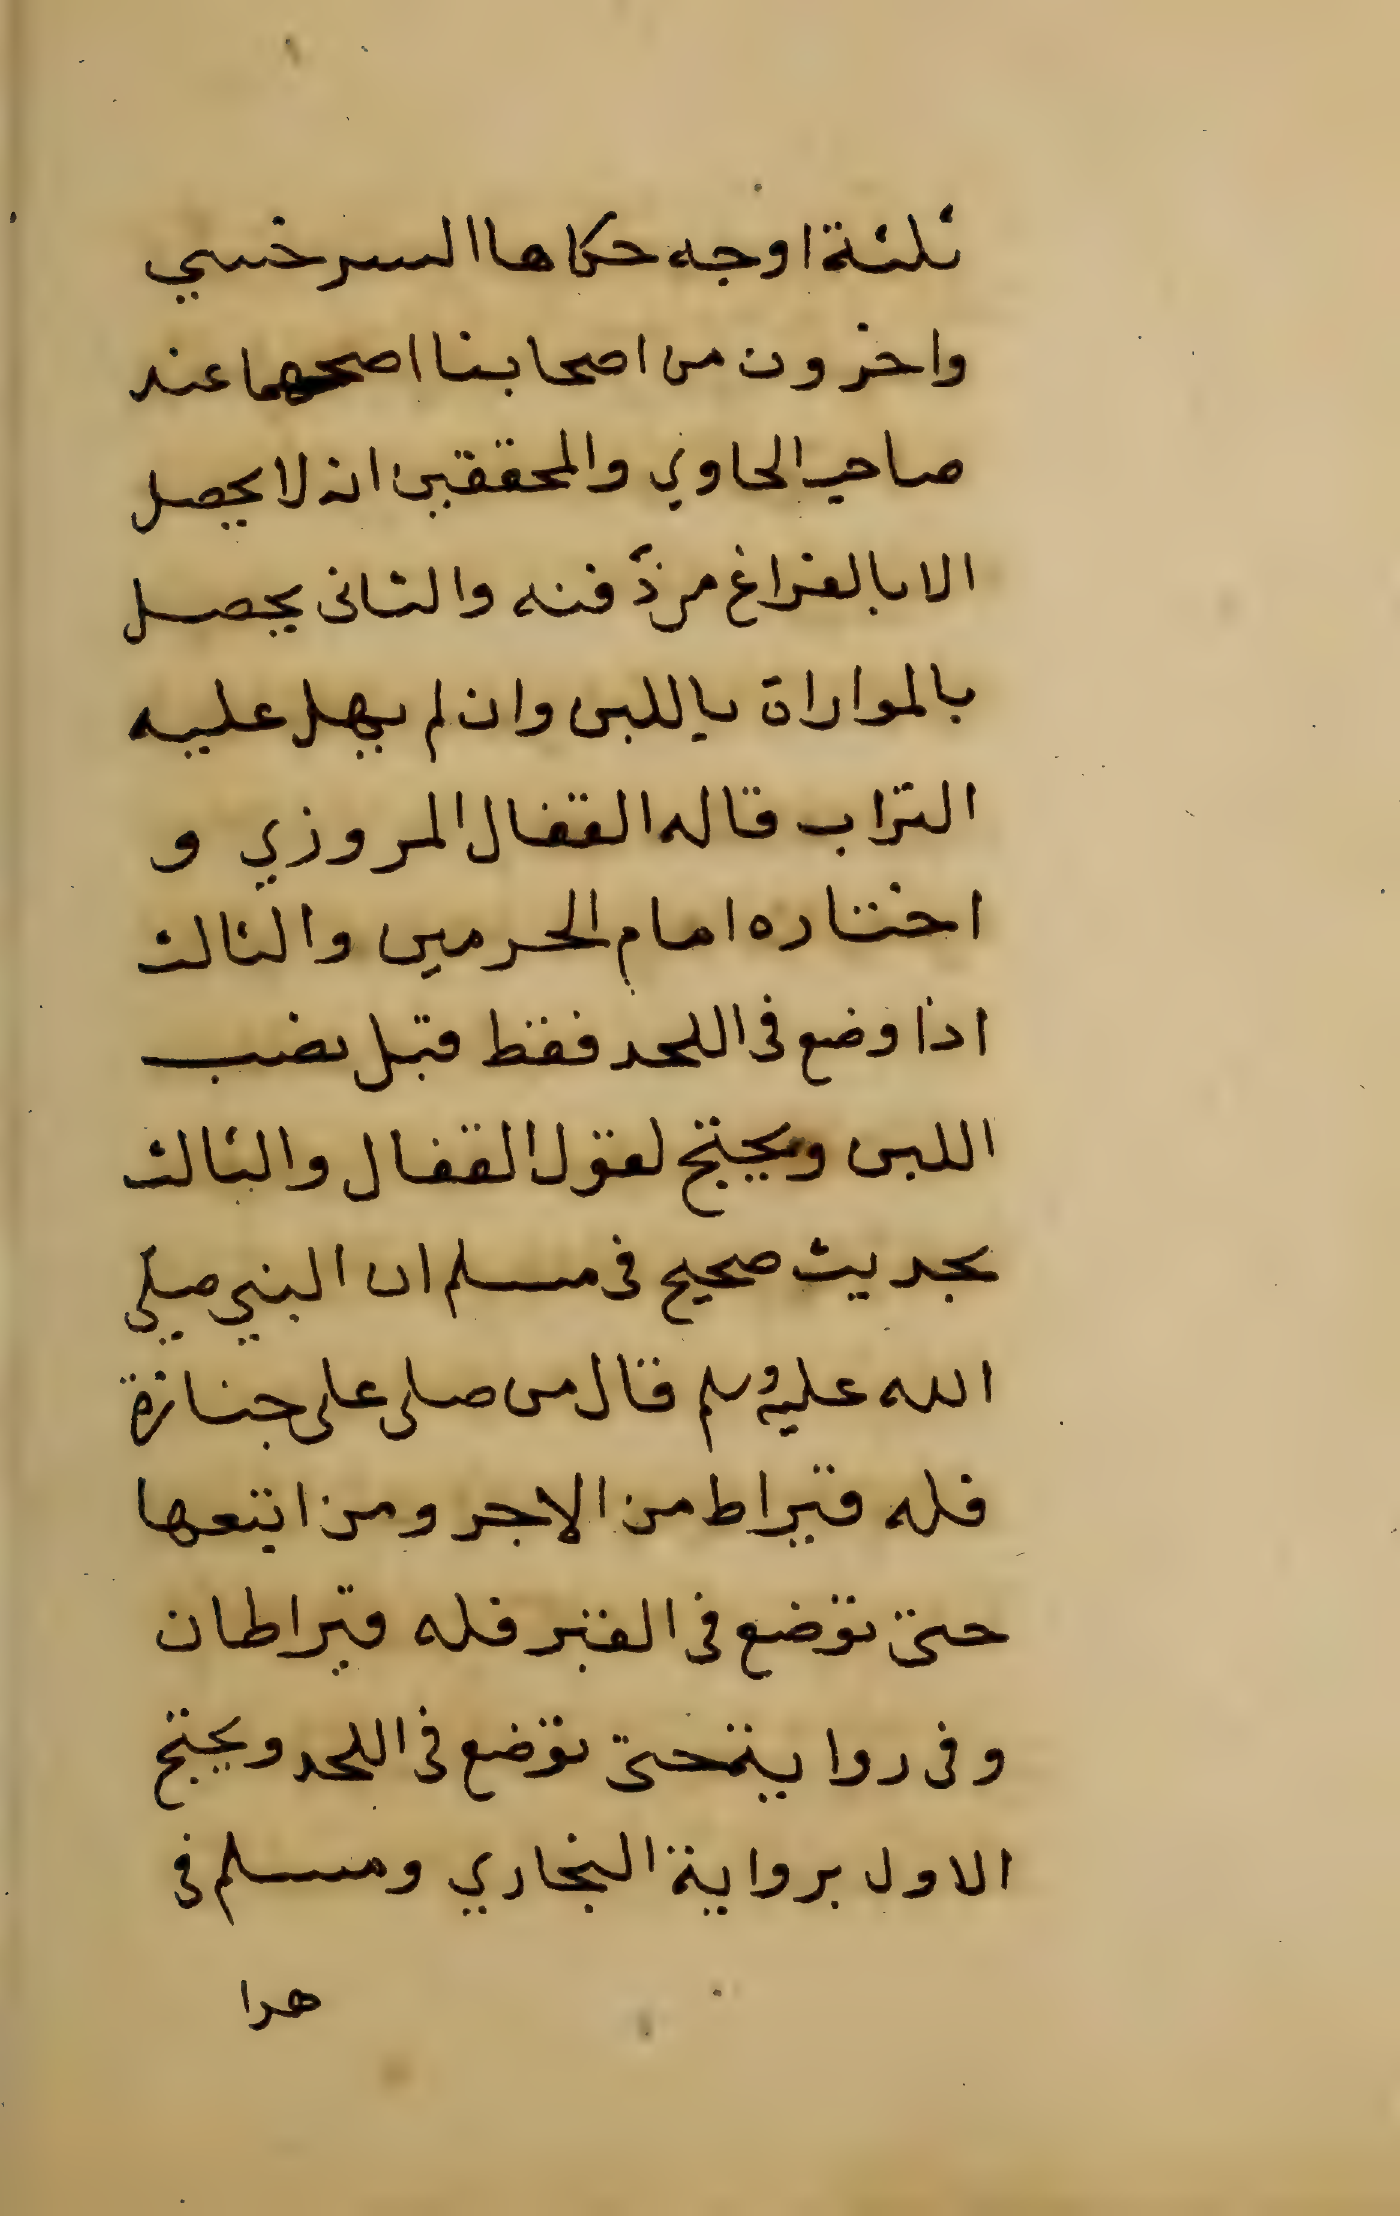 ثلثة اوجه حكاها السرخسي
واخرون من اصحابنا اصحهما عند
صاحب الحاوي والمحققين انه لا يحصل
الا بالفراغ من دفنه والثاني يحصل
بالمواراة باللبن وان لم يهل عليه
التراب قاله القفال المروزي و
اختاره امام الحرمين والثالث
اذا وضع في اللحد فقط قبل نصب
اللبن ويحتج لقول القفال والثالث
بحديث صحيح في مسلم ان النبي صلى
الله عليه وسلم قال من صلى على جنازة
فله قيراط من الاجر ومن اتبعها
حتى توضع في القبر فله قيراطان
وفي رواية حتى توضع في اللحد ويحتج
الاول برواية البخاري ومسلم في
هدا